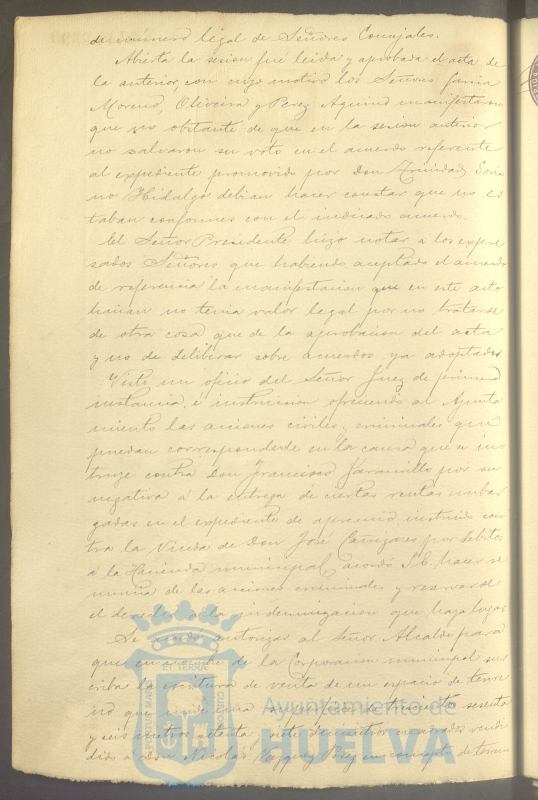 de número legal de Señores Concejales.
Abierta la sesion fué leida y aprobada el acta de
la anterior, con cuyo motivo los Señores Garcia
Moreno, Oliveira y Perez Aquino manifestaron
que no obstante de que en la sesion anterior
no salvaron su voto en el acuerdo referente
al expediente promovido por Don Trinidad Soria
no Hidalgo debian hacer constar que no es
taban conformes con el indicado acuerdo.
El Señor Presidente hizo notar á los expre
sados Señores que habiendo aceptado el acuerdo
de referencia la manifestacion que en este acto
hacian no tenia valor legal por no tratarse
de otra cosa que de la aprobacion del acta
y no de deliberar sobre acuerdos ya adoptados
Visto un oficio del Señor Juez de primera
instancia é instruccion ofreciendo al Ayunta
miento las acciones civiles y criminales que
puedan corresponderle en la causa que se ins
truye contra Don Francisco Jaramillo por su
negativa á la entrega de ciertas rentas embar
gadas en el expediente de apremio instruido con
tra la Viuda de Don José Cañizares por debitos
á la Hacienda municipal, acordó S.E. hacer re
nuncia de las acciones criminales y reservarse
el derecho á la indemnizacion que haya lugar
Se acordó autorizar al Señor Alcalde para
que en nombre de la Corporacion municipal sus
criba la escritura de venta de un espacio de terre
no que mide una superficie de trescientos sesenta
y seis metros setenta y siete decimetros cuadrados vendi
dido á Don Nicolás Vazquez Perez en concepto de terreno
PORTUS MARIS ET TERRÆ CUSTODIA
Ayuntamiento de
HUELVA